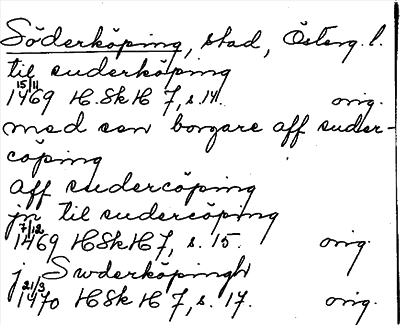 Söderköping, stad, Österg. l.
til suderköping
15/11
1469 HSkH 7, s. 14. orig.
med sen borgare aff suder-
cöping
aff sudercöping
jn til sudercöping
7/12
1469 HSkH 7, s. 15. orig.
j Swderköpingh
21/3
1470 HSkH 7, s. 17. orig.